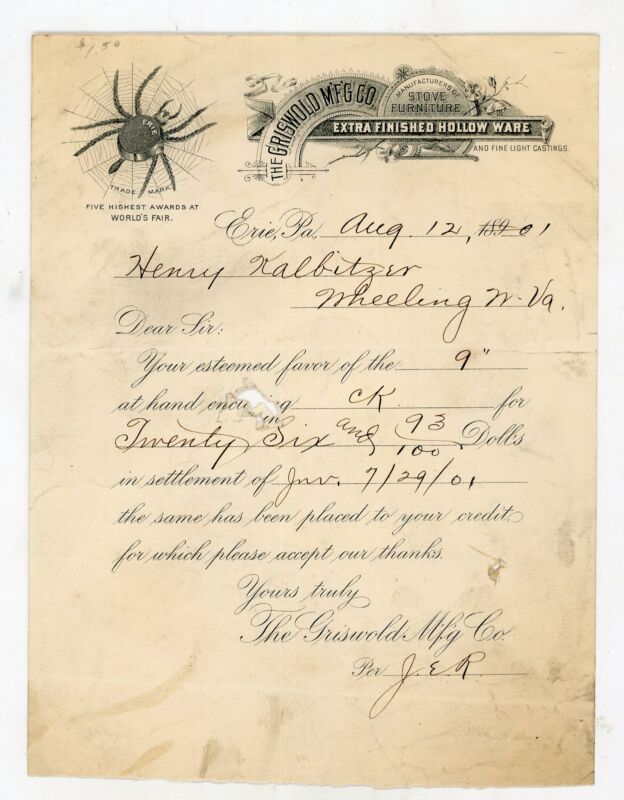 $1.50
THE GRISWOLD M'F'G CO.
MANUFACTURERS OF
STOVE
FURNITURE
EXTRA FINISHED HOLLOW WARE
AND FINE LIGHT CASTINGS.
ERIE
TRADE MARK
FIVE HIGHEST AWARDS AT
WORLD'S FAIR.
Erie, Pa, Aug. 12, 189 01
Henry Kalbitzer
Wheeling W. Va.
Dear Sir:
Your esteemed favor of the 9"
at hand enc g ck for
in
Twenty Six and 93/100 Dolls
in settlement of Inv. 7/29/01
the same has been placed to your credit,
for which please accept our thanks.
Yours truly
The Griswold Mf'g Co.
Per J.E.R.